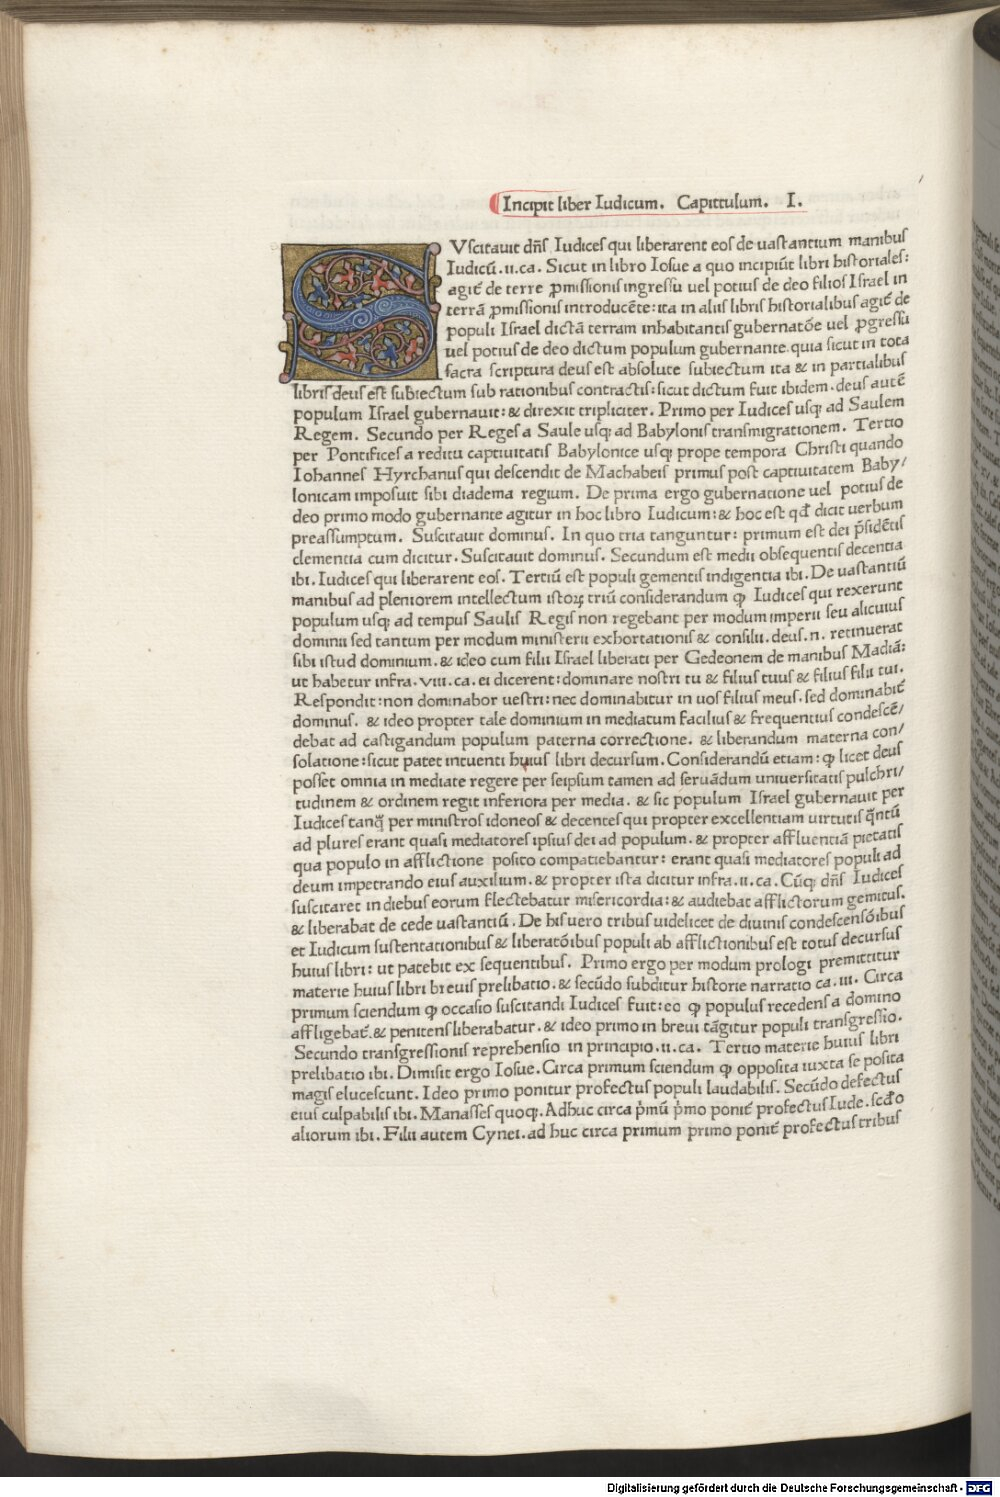 Incipit liber Iudicum. Capittulum. I.
SVſcitauit dn̄s Iudiceſ qui liberarent eoſ de uaſtantium manibuſ
Iudicū.ii.ca. Sicut in libro Ioſue a quo incipiūt libri hiſtorialeſ:
agit̄ de terre ꝓmiſſioniſ ingreſſu uel potiuſ de deo filioſ Iſrael in
terrā ꝓmiſſioniſ introducēte:ita in aliiſ libriſ hiſtorialibuſ agit̄ de
populi Iſrael dictā terram inhabitantiſ gubernatōe uel ꝓgreſſu
uel potiuſ de deo dictum populum gubernante.quia ſicut in tota
ſacra ſcriptura deuſ eſt abſolute ſubiectum ita & in partialibuſ
libriſ deuſ eſt ſubiectum ſub rationibuſ contractiſ:ſicut dictum fuit ibidem.deuſ autē
populum Iſrael gubernauit:& direxit tripliciter. Primo per Iudiceſ uſq; ad Saulem
Regem. Secundo per Regeſ a Saule uſq; ad Babyloniſ tranſmigrationem. Tertio
per Pontificeſ a reditu captiuitatiſ Babylonice uſq; prope tempora Chriſti quando
Iohanneſ Hyrchanuſ qui deſcendit de Machabeiſ primuſ poſt captiuitatem Baby/
lonicam impoſuit ſibi diadema regium. De prima ergo gubernatione uel potiuſ de
deo primo modo gubernante agitur in hoc libro Iudicum:& hoc eſt qd̄ dicit uerbum
preaſſumptum. Suſcitauit dominuſ. In quo tria tanguntur: primum eſt dei p̄ſidētiſ
clementia cum dicitur.Suſcitauit dominuſ. Secundum eſt medii obſequentiſ decentia
ibi.Iudiceſ qui liberarent eoſ. Tertiū eſt populi gementiſ indigentia ibi.De uaſtantiū
manibuſ ad pleniorem intellectum iſtoꝝ triū conſiderandum ꝙ Iudiceſ qui rexerunt
populum uſq; ad tempuſ Sauliſ Regiſ non regebant per modum imperii ſeu alicuiuſ
dominii ſed tantum per modum miniſterii exhortationiſ & conſilii.deuſ.n. retinuerat
ſibi iſtud dominium.& ideo cum filii Iſrael liberati per Gedeonem de manibuſ Madiā:
ut habetur infra.viii.ca.ei dicerent:dominare noſtri tu & filiuſ tuuſ & filiuſ filii tui.
Reſpondit:non dominabor ueſtri:nec dominabitur in uoſ filiuſ meuſ.ſed dominabit̄
dominuſ. & ideo propter tale dominium in mediatum faciliuſ & frequentiuſ condeſcē/
debat ad caſtigandum populum paterna correctione. & liberandum materna con/
ſolatione:ſicut patet intuenti huiuſ libri decurſum.Conſiderandū etiam:ꝙ licet deuſ
poſſet omnia in mediate regere per ſeipſum tamen ad ſeruādum uniuerſitatiſ pulchri/
tudinem & ordinem regit inferiora per media. & ſic populum Iſrael gubernauit per
Iudiceſ tanq̄ per miniſtroſ idoneoſ & decenteſ qui propter excellentiam uirtutiſ q̄ntū
ad plureſ erant quaſi mediatoreſ ipſiuſ dei ad populum.& propter affluentiā pietatiſ
qua populo in afflictione poſito compatiebantur: erant quaſi mediatoreſ populi ad
deum impetrando eiuſ auxilium.& propter iſta dicitur infra.ii.ca. Cūq; dn̄ſ Iudiceſ
ſuſcitaret in diebuſ eorum flectebatur miſericordia:& audiebat afflictorum gemituſ.
& liberabat de cede uaſtantiū.De hiſ uero tribuſ uidelicet de diuiniſ condeſcenſōibuſ
et Iudicum ſuſtentationibuſ & liberatōibuſ populi ab afflictionibuſ eſt totuſ decurſuſ
huiuſ libri: ut patebit ex ſequentibuſ. Primo ergo per modum prologi premittitur
materie huiuſ libri breuiſ prelibatio.& ſecūdo ſubditur hiſtorie narratio ca.iii. Circa
primum ſciendum ꝙ occaſio ſuſcitandi Iudiceſ fuit:eo ꝙ populuſ recedenſ a domino
affligebat̄.& penitenſ liberabatur.& ideo primo in breui tāgitur populi tranſgreſſio.
Secundo tranſgreſſioniſ reprehenſio in principio.ii.ca. Tertio materie huiuſ libri
prelibatio ibi.Dimiſit ergo Ioſue.Circa primum ſciendum ꝙ oppoſita iuxta ſe poſita
magiſ eluceſcunt.Ideo primo ponitur profectuſ populi laudabiliſ. Secūdo defectuſ
eiuſ culpabiliſ ibi.Manaſſeſ quoq;.Adhuc circa p̄mū p̄mo ponit̄ profectuſ Iude.ſcd̄o
aliorum ibi.Filii autem Cynei.ad huc circa primum primo ponit̄ profectuſ tribuſ
Digitalisierung gefördert durch die Deutsche Forschungsgemeinschaft - DFG